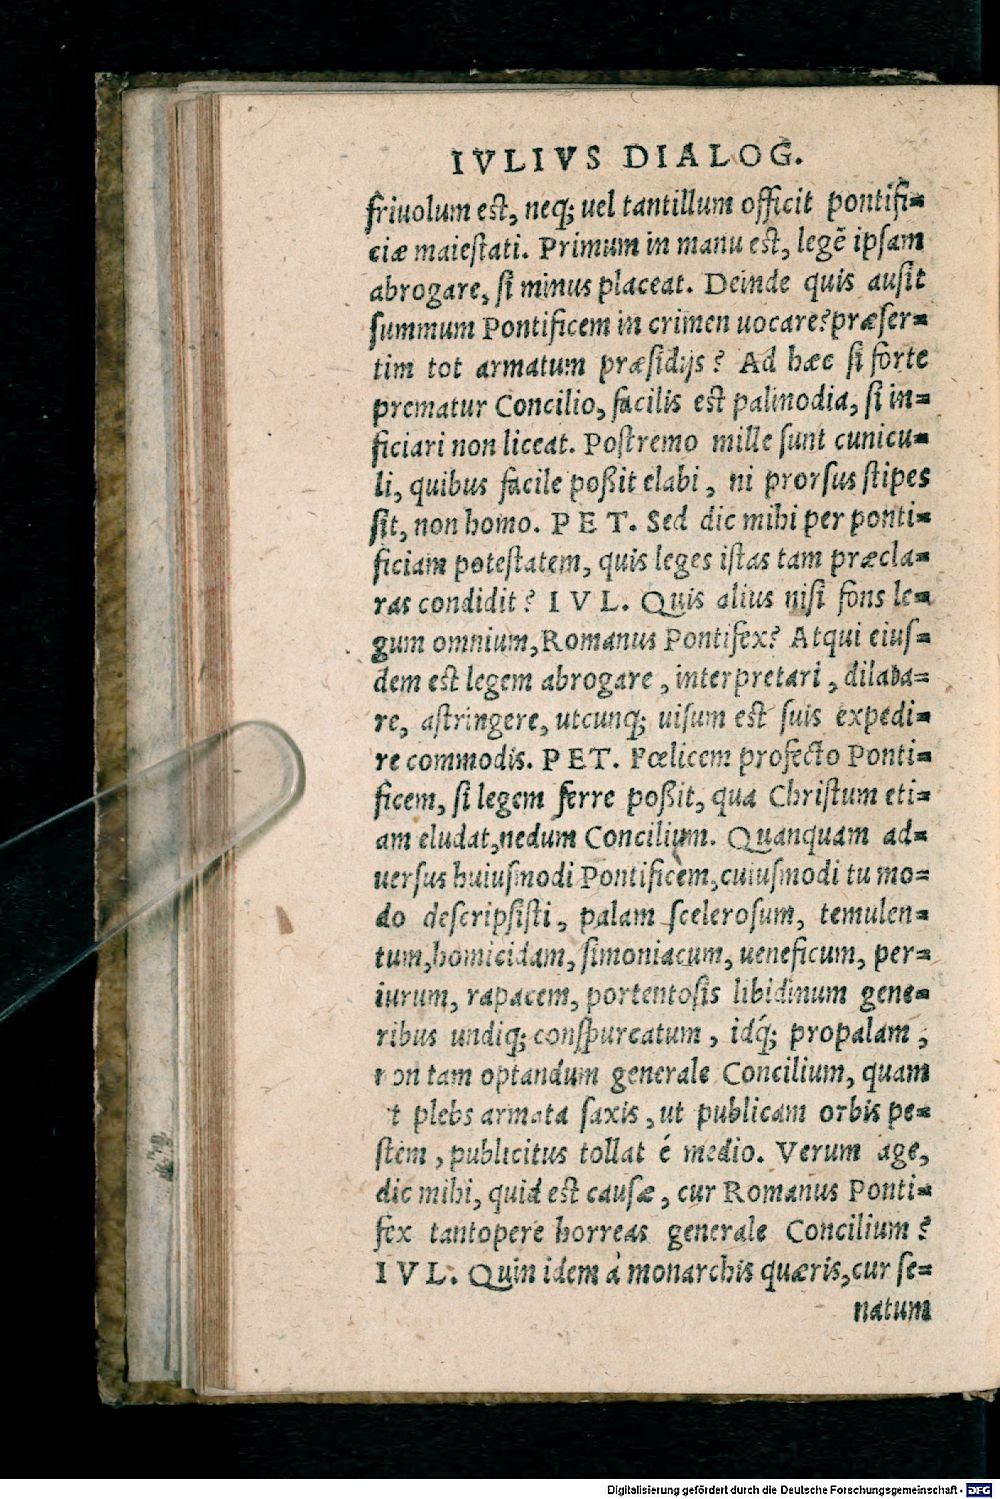 IVLIVS DIALOG.
friuolum est, neq; uel tantillum officit pontifi=
ciæ maiestati. Primum in manu est, legẽ ipsam
abrogare, si minus placeat. Deinde quis ausit
summum Pontificem in crimen uocare? præser=
tim tot armatum præsidijs? Ad hæc si forte
prematur Concilio, facilis est palinodia, si in=
ficiari non liceat. Postremo mille sunt cunicu=
li, quibus facile poßit elabi, ni prorsus stipes
sit, non homo. PET. Sed dic mihi per ponti=
ficiam potestatem, quis leges istas tam præcla=
ras condidit? IVL. Quis alius nisi fons le=
gum omnium, Romanus Pontifex? Atqui eius=
dem est legem abrogare, interpretari, dilata=
re, astringere, utcunq; uisum est suis expedi=
re commodis. PET. Fœlicem profecto Ponti=
ficem, si legem ferre poßit, qua Christum eti=
am eludat, nedum Concilium. Quanquam ad=
uersus huiusmodi Pontificem, cuiusmodi tu mo=
do descripsisti, palam scelerosum, temulen=
tum, homicidam, simoniacum, ueneficum, per=
iurum, rapacem, portentosis libidinum gene=
ribus undiq; conspurcatum, idq́; propalam,
non tam optandum generale Concilium, quam
t plebs armata saxis, ut publicam orbis pe=
stem, publicitus tollat é medio. Verum age,
dic mihi, quid est causæ, cur Romanus Ponti=
fex tantopere horreas generale Concilium?
IVL. Quin idem à monarchis quæris, cur se=
natum
Digitalisierung gefördert durch die Deutsche Forschungsgemeinschaft - DFG